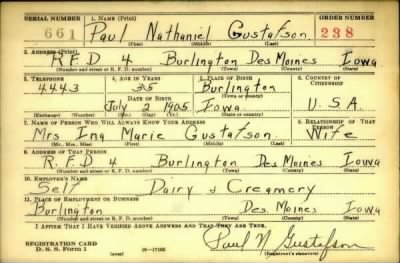 SERIAL NUMBER 1. NAME (Print) ORDER NUMBER
661 Paul Nathaniel Gustafson 238
(First) (Middle) (Last)
2. ADDRESS (Print)
R.F.D 4 Burlington Des Moines Iowa
(Number and street or R. F. D. number) (Town) (County) (State)
3. TELEPHONE 4. AGE IN YEARS 5. PLACE OF BIRTH 6. COUNTRY OF CITIZENSHIP
4443 35 Burlington
DATE OF BIRTH (Town or county)
July 2 1905 Iowa U.S.A.
(Exchange) (Number) (Mo.) (Day) (Yr.) (State or country)
7. NAME OF PERSON WHO WILL ALWAYS KNOW YOUR ADDRESS 8. RELATIONSHIP OF THAT PERSON
Mrs Ina Marie Gustafson Wife
(Mr., Mrs., Miss) (First) (Middle) (Last)
9. ADDRESS OF THAT PERSON
R.F.D 4 Burlington Des Moines Iowa
(Number and street or R. F. D. number) (Town) (County) (State)
10. EMPLOYER'S NAME
Self Dairy & Creamery
11. PLACE OF EMPLOYMENT OR BUSINESS
Burlington Des Moines Iowa
(Number and street or R. F. D. number) (Town) (County) (State)
I AFFIRM THAT I HAVE VERIFIED ABOVE ANSWERS AND THAT THEY ARE TRUE.
REGISTRATION CARD
D. S. S. Form 1 (over) Paul N Gustafson
(Registrant's signature)